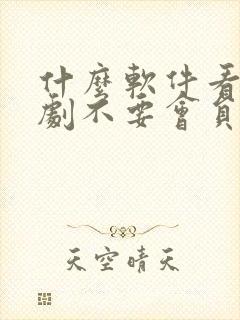 什麼軟件看
劇不要會員
天空晴天